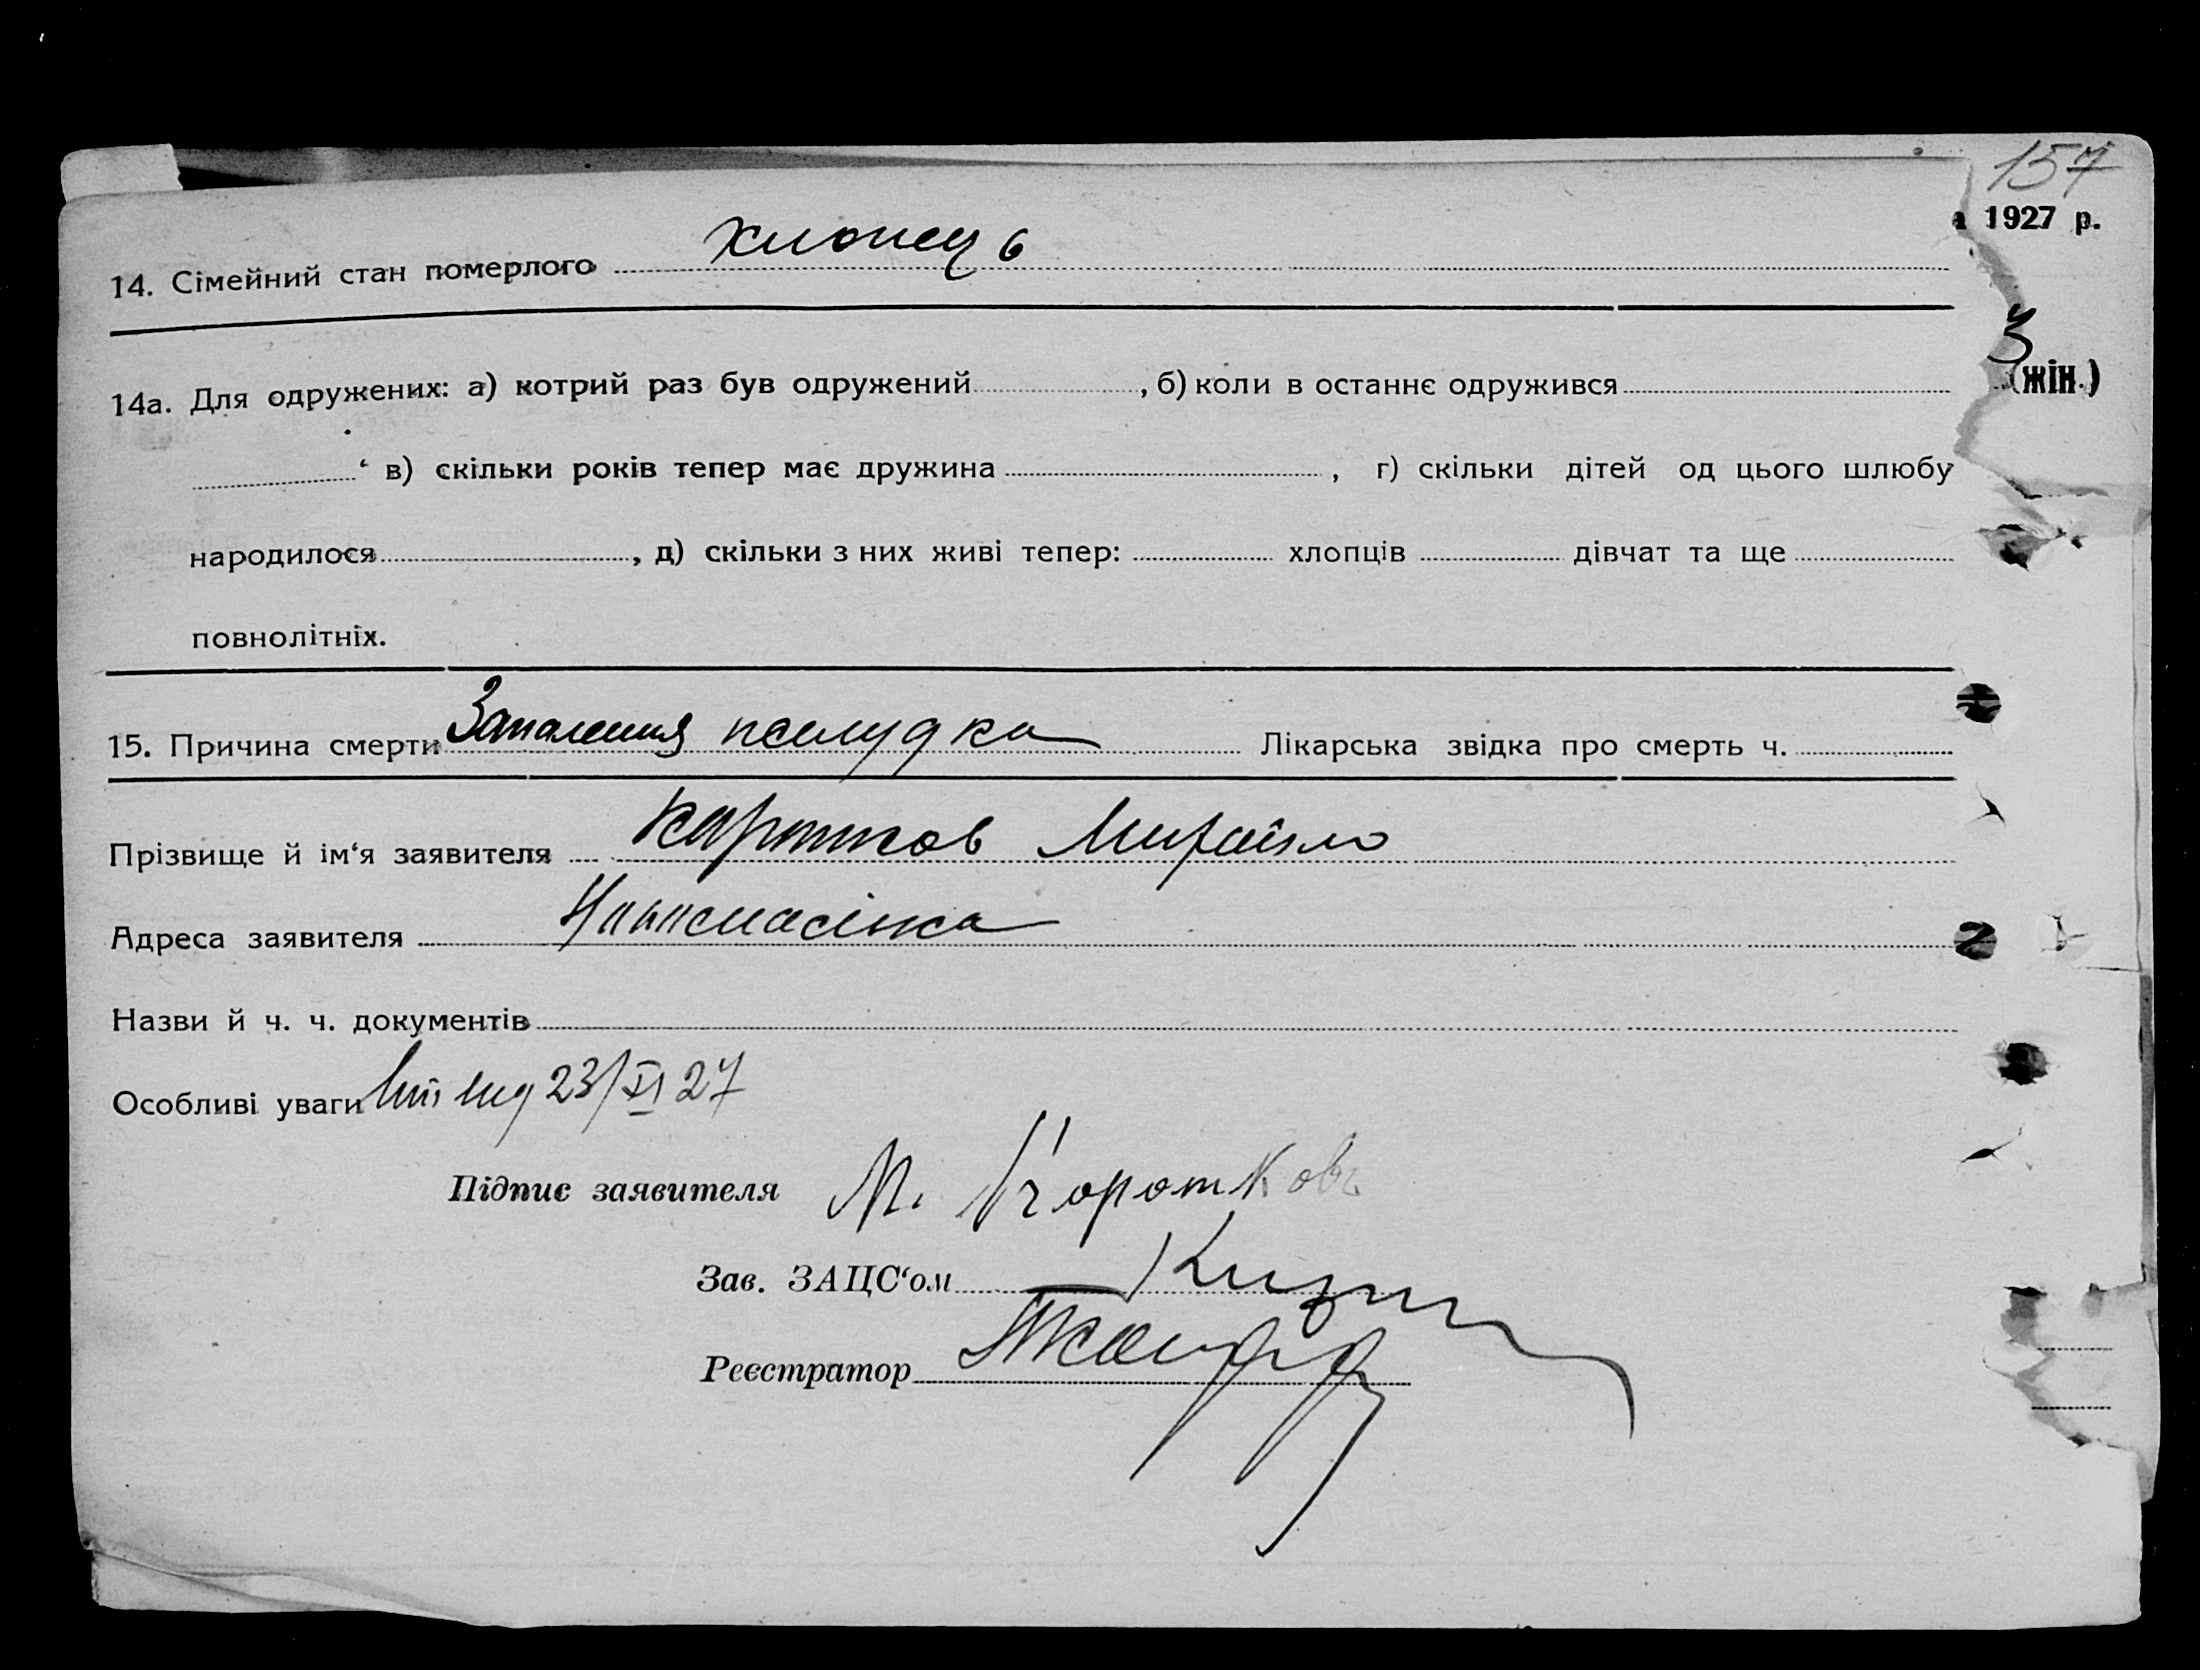 157
а 1927 р.
14. Сімейний стан померлого хлопець
(жін.)
14а. Для одружених: а) котрий раз був одружений , б) коли в останнє одружився
в) скільки років тепер має дружина , г) скільки дітей од цього шлюбу
народилося , д) скільки з них живі тепер: хлопців дівчат та ще
повнолітніх.
15. Причина смерти Запалення желудка Лікарська звідка про смерть ч.
Прізвище й ім‘я заявителя Михайло
Адреса заявителя
Назви й ч. ч. документів
Особливі уваги 23/XI 27
Підпис заявителя М. Коротковъ
Зав. ЗАЦС‘ом
Реєстратор